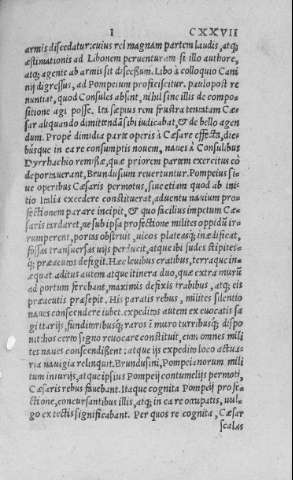 I CXXVII
armis discedatur: cuius rei magnam partem laudis, atq;
æstimationis ad Libonem peruenturam si illo authore,
atq; agente ab armis sit discessum. Libo à colloquio Cani
nij digressus, ad Pompeium proficiscitur. paulopost re
nuntiat, quod Consules absint, nihil sinc illis de compo
sitione agi posse. Ita sæpius rem frustra tentatam Cæ
sar aliquando dimittendā sibi iudicabat, & de bello agen
dum. Prope dimidia parte operis à Cæsare effecta, die
busque in ea re consumptis nouem, naues à Consulibus
Dyrrhachio remissæ, quæ priorem partem exercitus eò
deportauerant, Brundusium reuertuntur. Pompeius si
ue operibus Cæsaris permotus, siue etiam quod ab ini
tio Italia excedere constituerat, aduentu nauium pro
fectionem parare incipit, & quo facilius impetum Cæ
saris tardaret, ne sub ipsa profectione milites oppidū ir
rumperent, portas obstruit, uicos plateasq; inædificat,
fossas transuersas uijs perducit, atque ibi sudes stipites
q; præacutos defigit. Hæc leuibus cratibus, terraque in
æquat. aditus autem atque itinera duo, quæ extra murū
ad portum ferebant, maximis defixis trabibus, atq; eis
præacutis præsepit. His paratis rebus, milites silentio
naues conscendere iubet. expeditos autem ex euocatis sa
gittarijs, funditoribusq; raros ī muro turribusq; dispo
nit. hos certo signo reuocare constituit, cum omnes mili
tes naues conscendissent: atque ijs expedito loco actua
ria nauigia relinquit. Brundusini, Pompeianorum mili
tum iniurijs, atque ipsius Pompeij contumelijs permoti,
Cæsaris rebus fauebant. Itaque cognita Pompeij profe
ctione, concursantibus illis, atq; in ea re occupatis, uul
go ex tectis significabant. Per quos re cognita, Cæsar
scalas